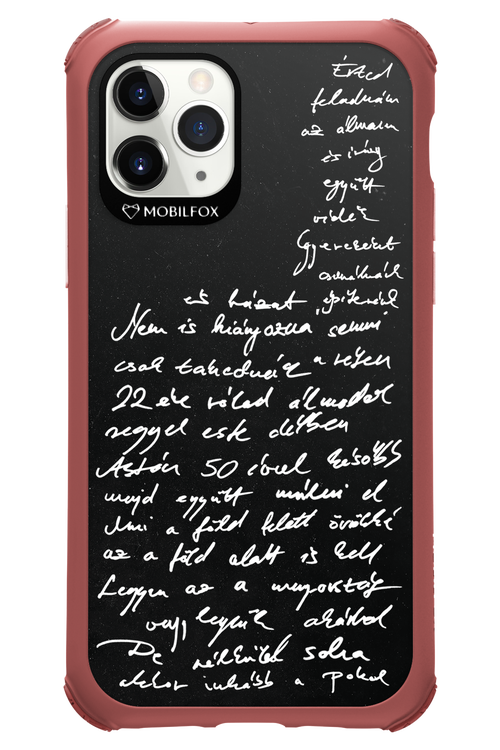 MOBILFOX
Érted
feladnám
az álmaim
és így
együtt
vidék
Gyereket
csinálnánk
és házat építenénk
Nem is hiányozna semmi
csak takednáz a résen
22 éve rólad álmodok
reggel este délben
Aztán 50 évvel később
majd együtt múlni el
Ami a föld felett örökké
az a föld alatt is kell
Legyen az a mennyország
vagy legyünk akárhol
De nélküled soha
akkor inkább a pokol